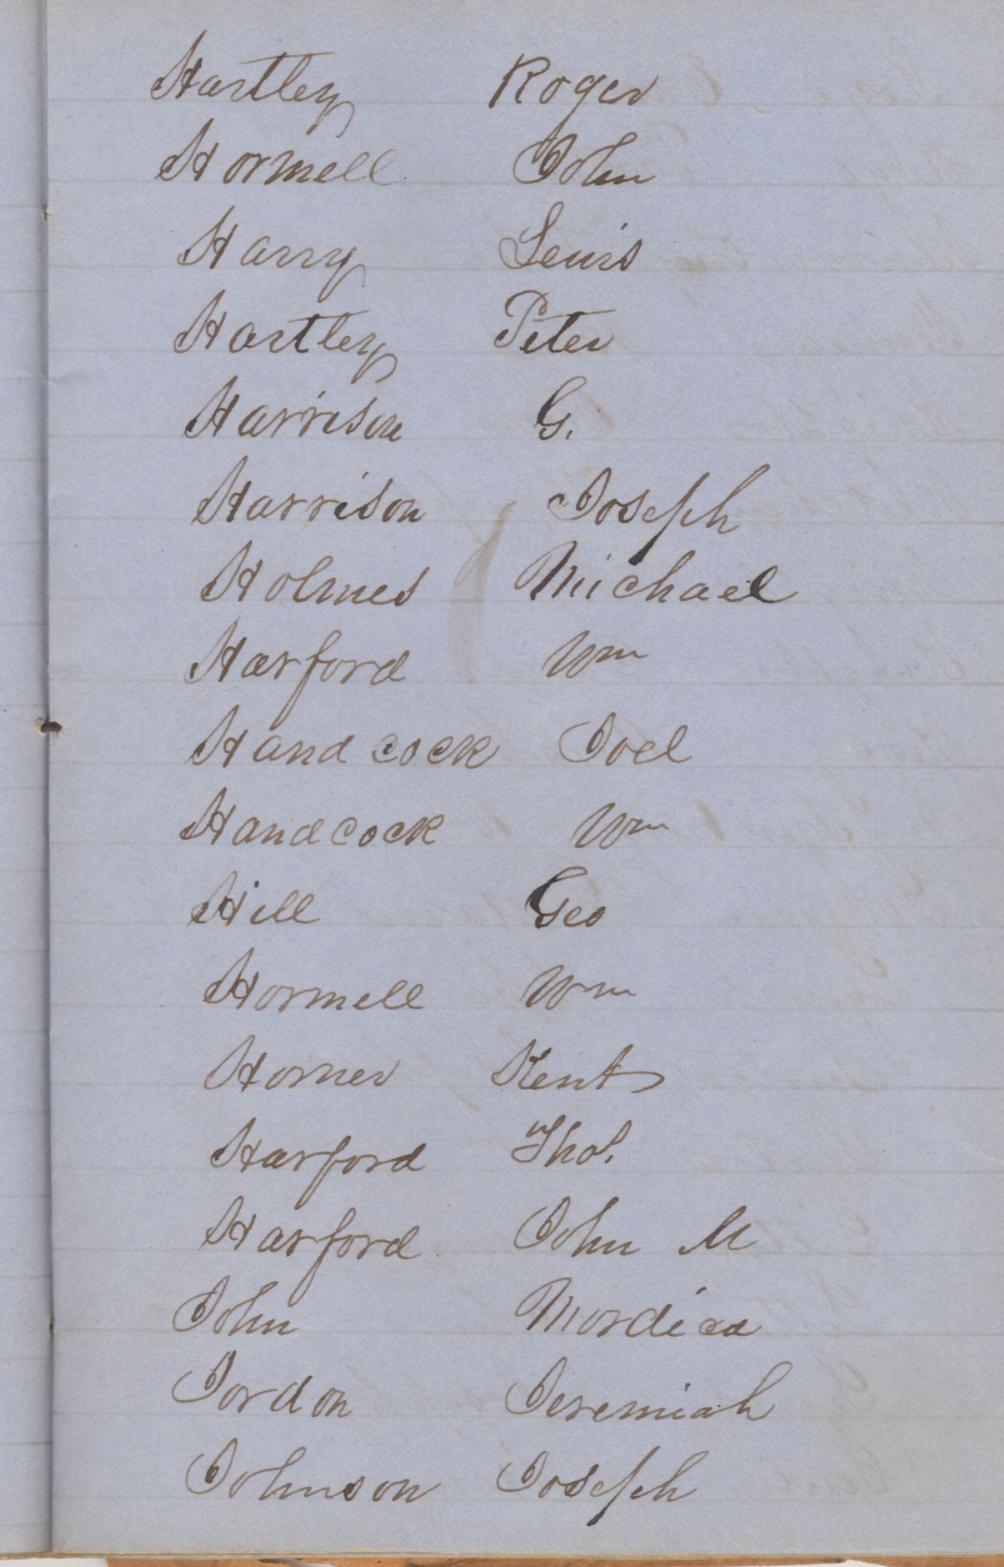 Hartley Roger
Hormell John
Harry Lewis
Hartley Peter
Harrison G.
Harrison Joseph
Holmes Michael
Harford Wm
Handcock Joel
Handcock Wm
Hill Geo
Hormell Wm
Horner Kent
Harford Thos.
Harford John M
John Mordica
Jordon Jeremiah
Johnson Joseph